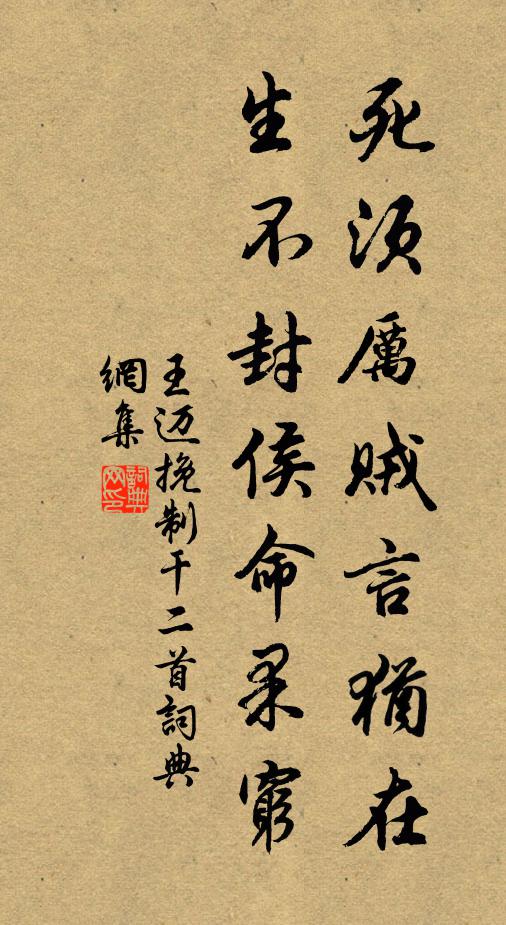 死须厲賊言猶在
生不封侯命果窮
王迈挽制干二首詞典
網集
詞典網印